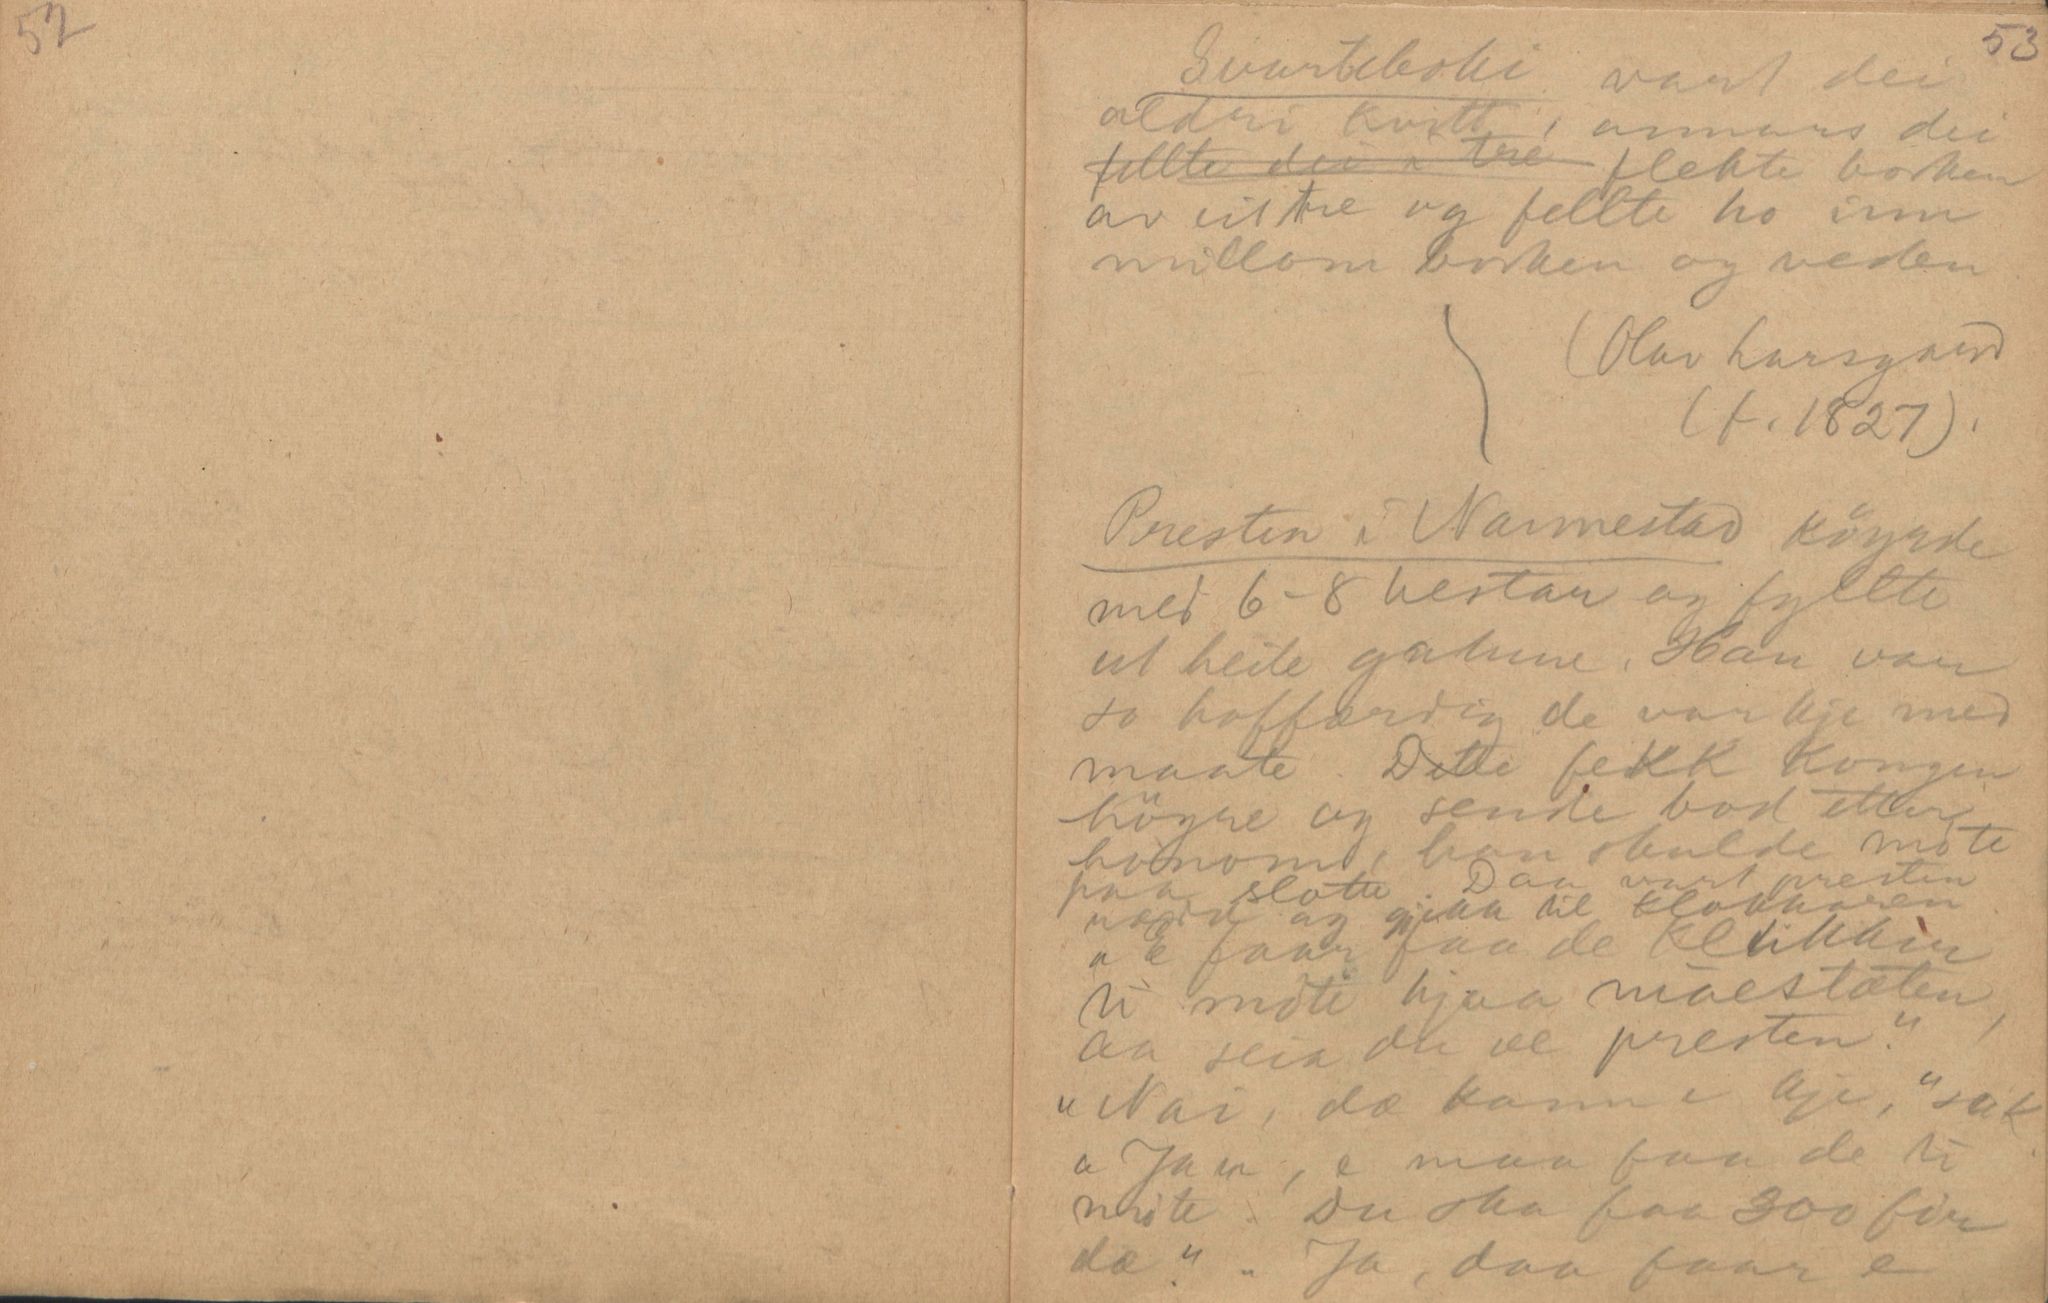 52
53
Svarteboki vart dei
aldri kvitt, annars dei
fellte dei i tre flekte borken
av eit tre og fellte ho inn
millom borken og veden
(Olav Larsgard
(f. 1827).
Presten i Nannestad köyrde
med 6-8 hestar og fyllte
ut heile gatune. Han var
so hoffærdig de var kje med
maate. Dette fekk kongen
höyre og sende bod etter
honom, han skulde möte
paa slotte. Daa vart presten
rædd og gjekk til klokkaren
"E faar faa de klokkar
ti möte hjaa maestæten,
aa seia du æ presten."
"Nai, dæ kann e kje," sa k.
"Jau, e maa faa de ti
möte. Du ska faa 300 för
dæ." "Ja, daa faar e